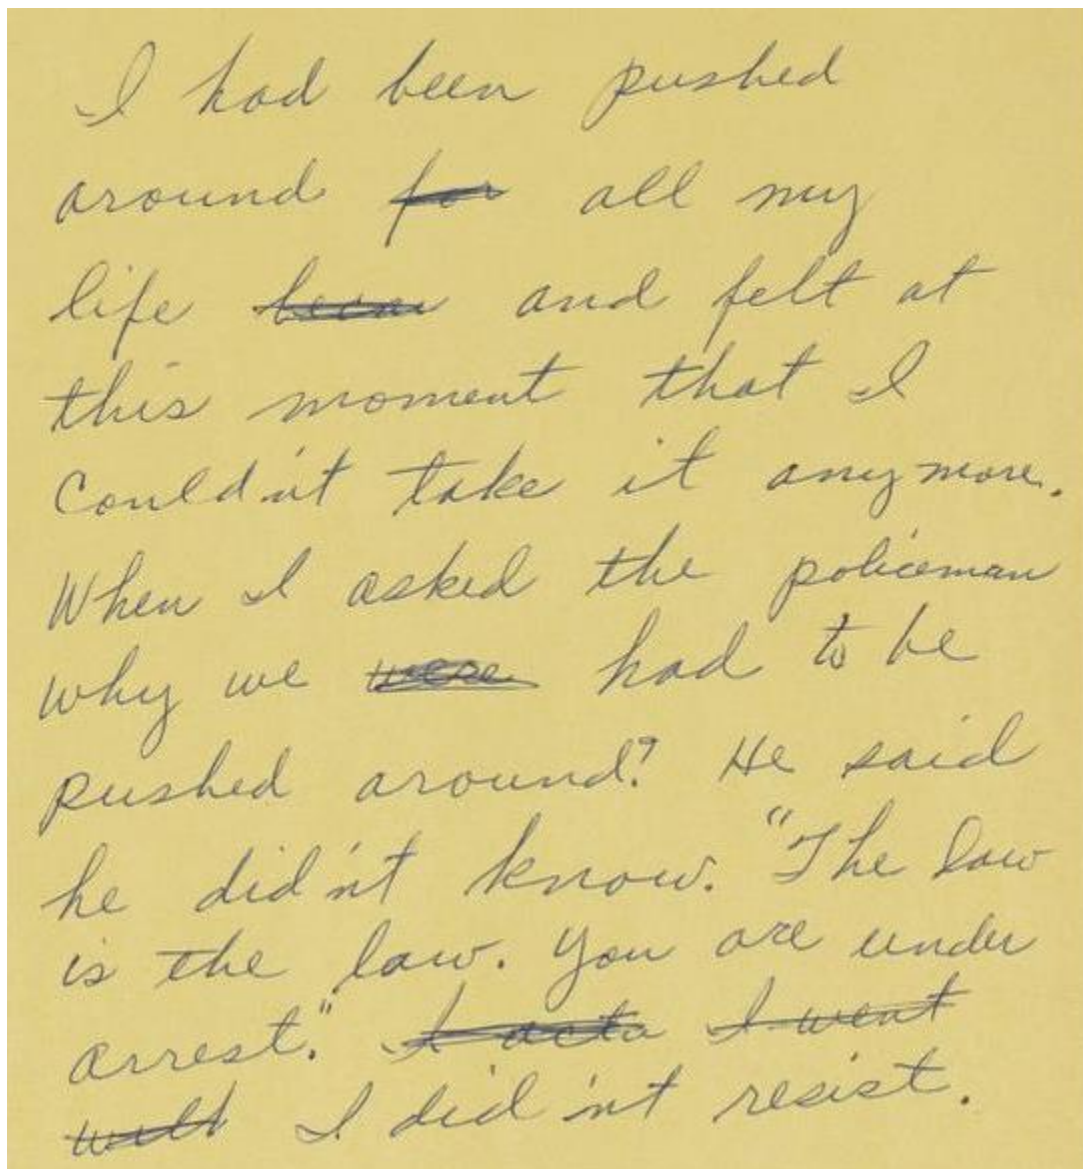 I had been pushed
around for all my
life been and felt at
this moment that I
couldn't take it anymore.
When I asked the policeman
why we were had to be
pushed around? He said
he didn't know. "The law
is the law. You are under
arrest." I I went
I didn't resist.